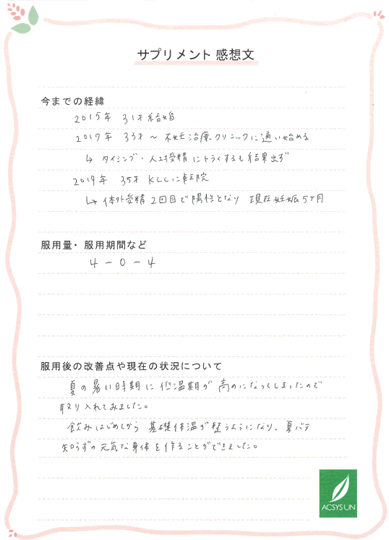 サプリメント 感想文
今までの経緯
2015年 31才結婚
2017年 33才～ 不妊治療クリニックに通い始める
↳ タイミング・人工授精にトライするも結果出ず
2019年 35才 KLCに転院
↳ 体外受精2回目で陽性となり 現在妊娠5ヶ月
服用量・服用期間など
4-0-4
服用後の改善点や現在の状況について
夏の暑い時期に低温期が高めになってしまったので
取り入れてみました。
飲みはじめてから 基礎体温が整うようになり、夏バテ
知らずの元気な身体を作ることができました。
ACSYS UN